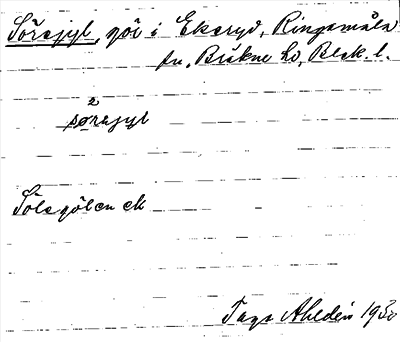 Sörsjyl, göl i Ekeryd, Ringamåla
sn, Bräkne hd, Blek. l.
2
sørsjyl
Sölsgölen ek
Tage Ahldén 1930